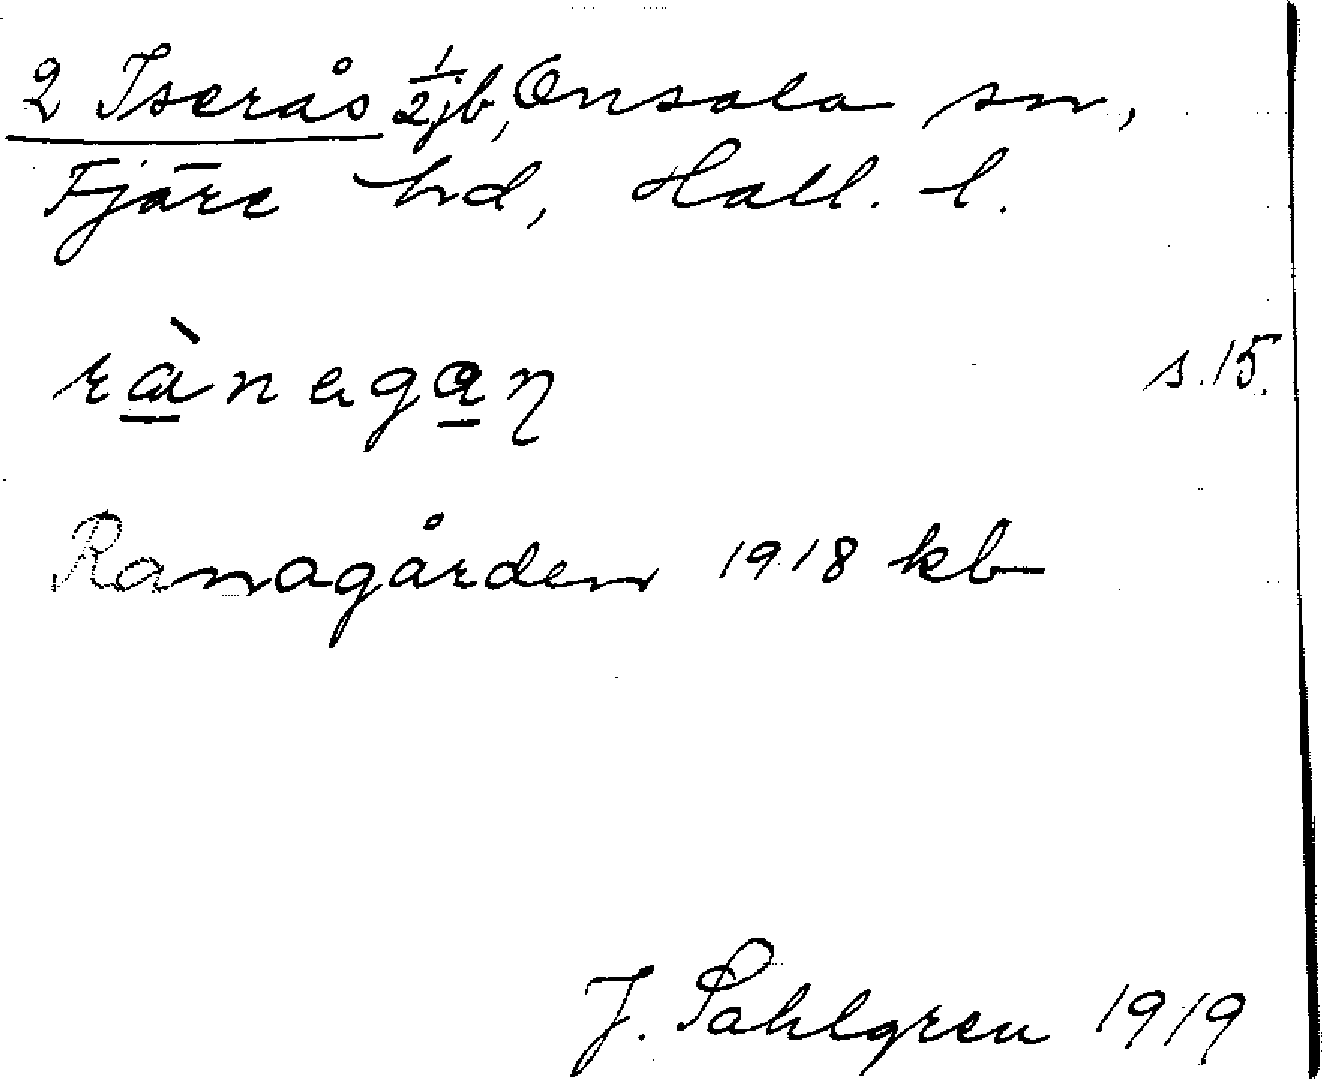 2 Iserås 1/2 jb, Onsala sn,
Fjäre hd, Hall. l.
rànagan s.15.
Ranagården 1918 kb
J. Sahlgren 1919